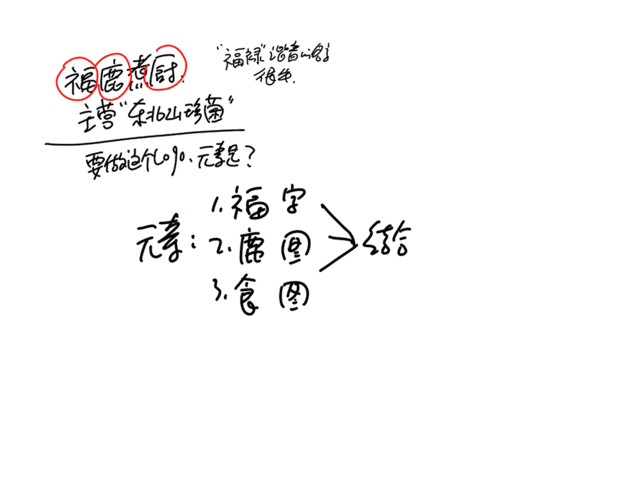 福鹿煮厨.
"福禄"谐音
很多.
主营"东北山珍菌"
要做这个logo.元素是?
元素:
1.福字
2.鹿图
3.食图
结合